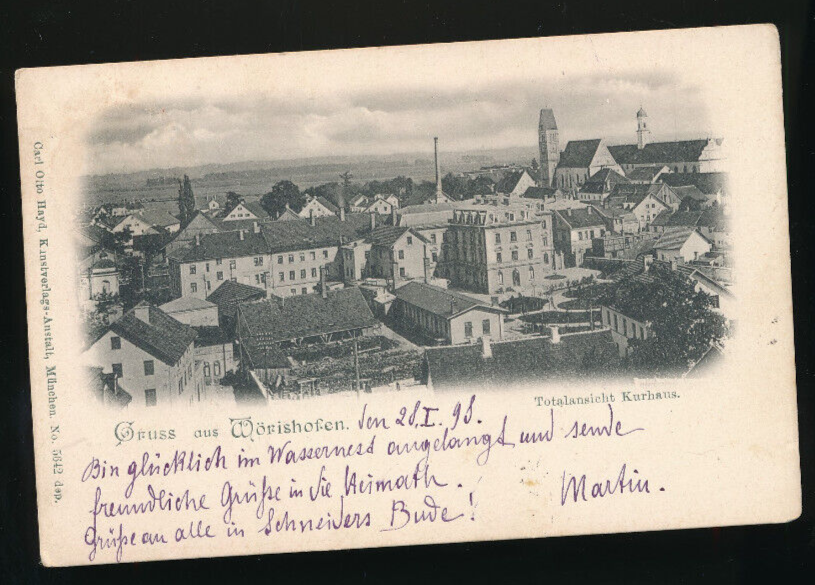 Totalansicht Kurhaus.
Gruss aus Wörishofen. den 28.I.98.
Bin glücklich im Wassernest angelangt und sende
freundliche Grüße in die Heimath.
Martin.
Grüße an alle in Schneiders Bude!
Carl Otto Hayd, Kunstverlags-Anstalt, München. No. 5642 dep.